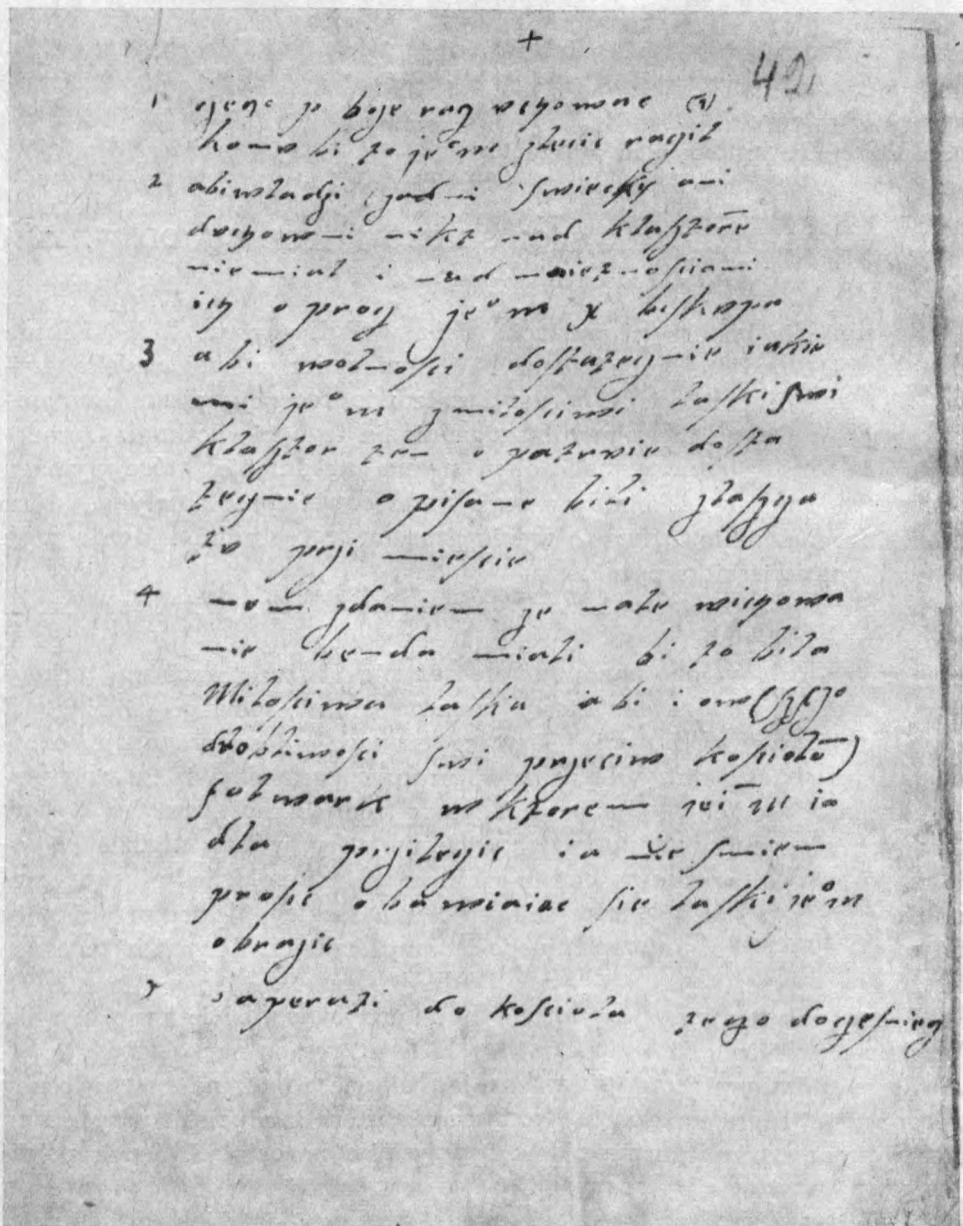 +
42
1 czego p boże racz uchowac
komu bi to je°m zlecic raczil
2 abi władzi zadni swiecky ani
duchowni nikt nad klasztorē
niemiał i nad maietnosciami
ich oprocz je°m x biskupa
3 abi wolnosci dostatecznie iakie
mi je°m zmiłosciwi łaski swi
klasztor ten opatruie dosta
tecznie opisane biłi złaszcza
tu przi miescie
4 mem zdaniem ze małe wichowa
nie benda miałi bi to biła
Miłosciwa łaska abi i
swi przeciw kosciołū
folwark w ktorem
dla przilegic ia nie smiem
prosic obawiaiac sie łaski je°m
obrazic
5 aperati do koscioła tego doczesnieg